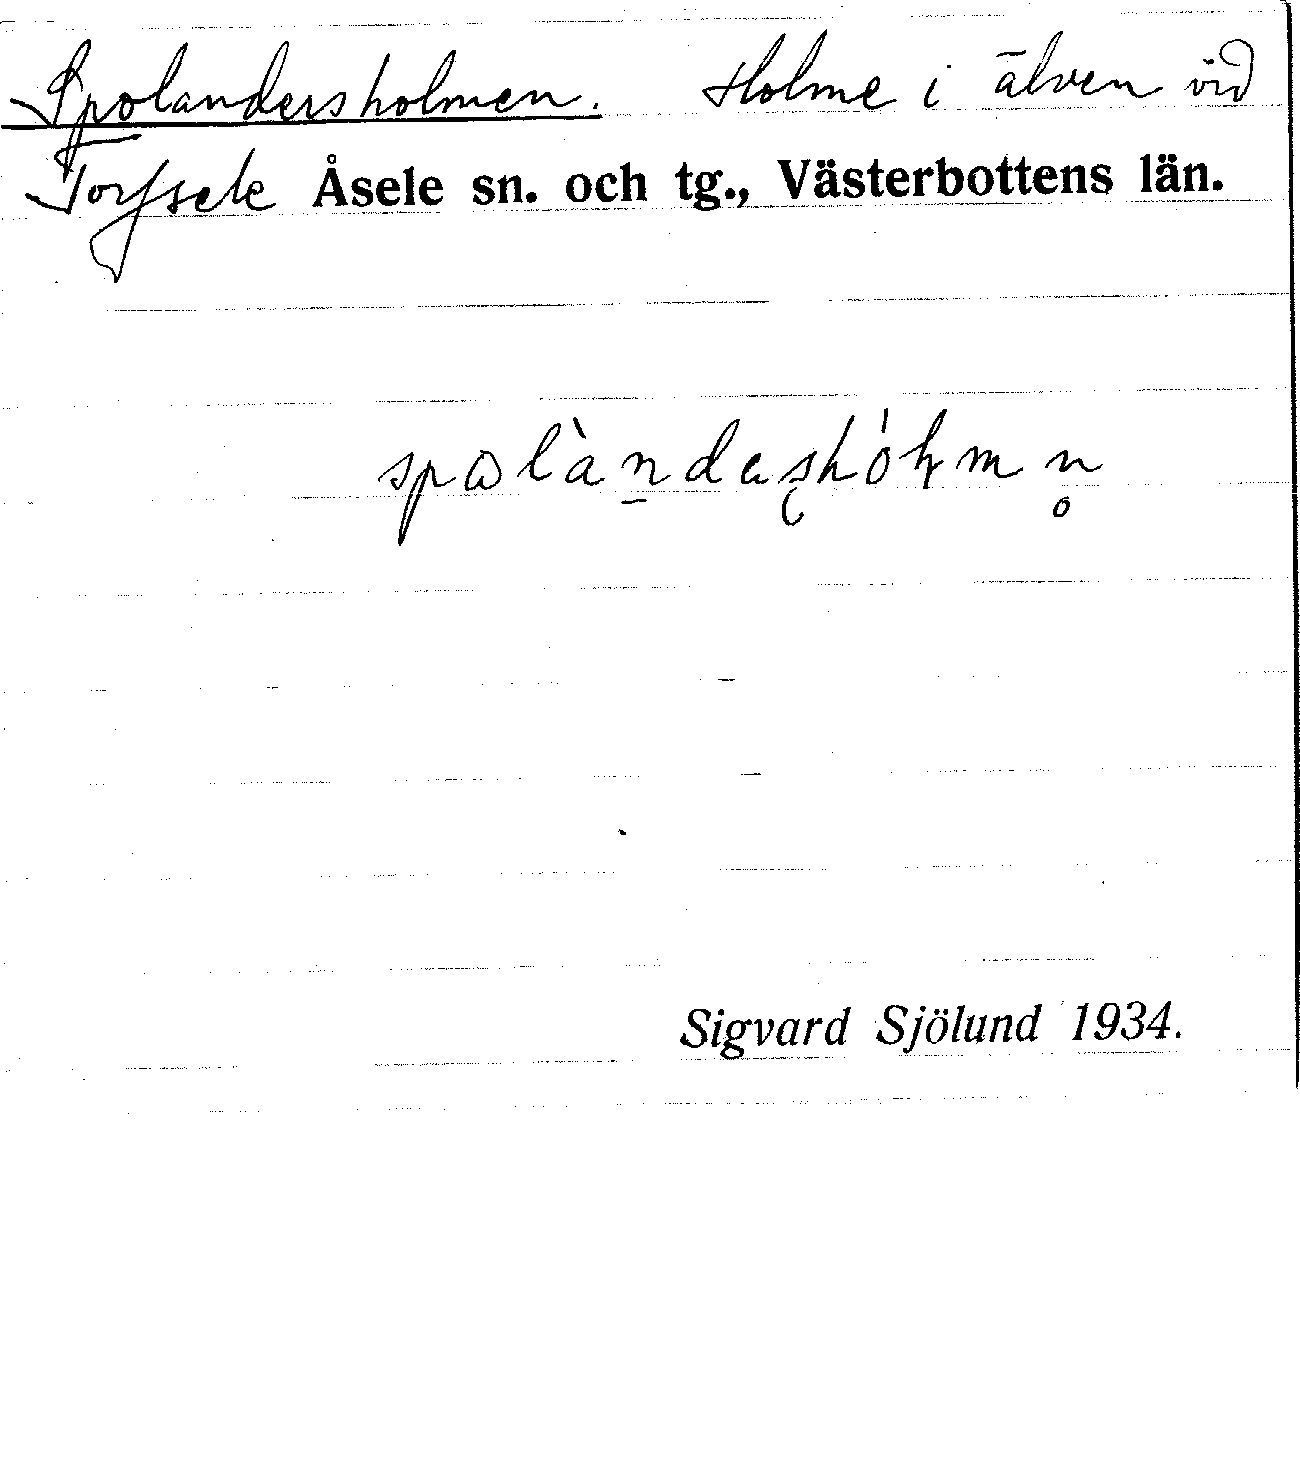 Spolandersholmen. Holme i älven vid
Torfsele Åsele sn. och tg., Västerbottens län.
spⱺlàn̠daʂhóɫmn̥
Sigvard Sjölund 1934.